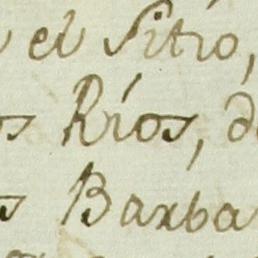 el Sitio,
os Ríos, d
s Barba